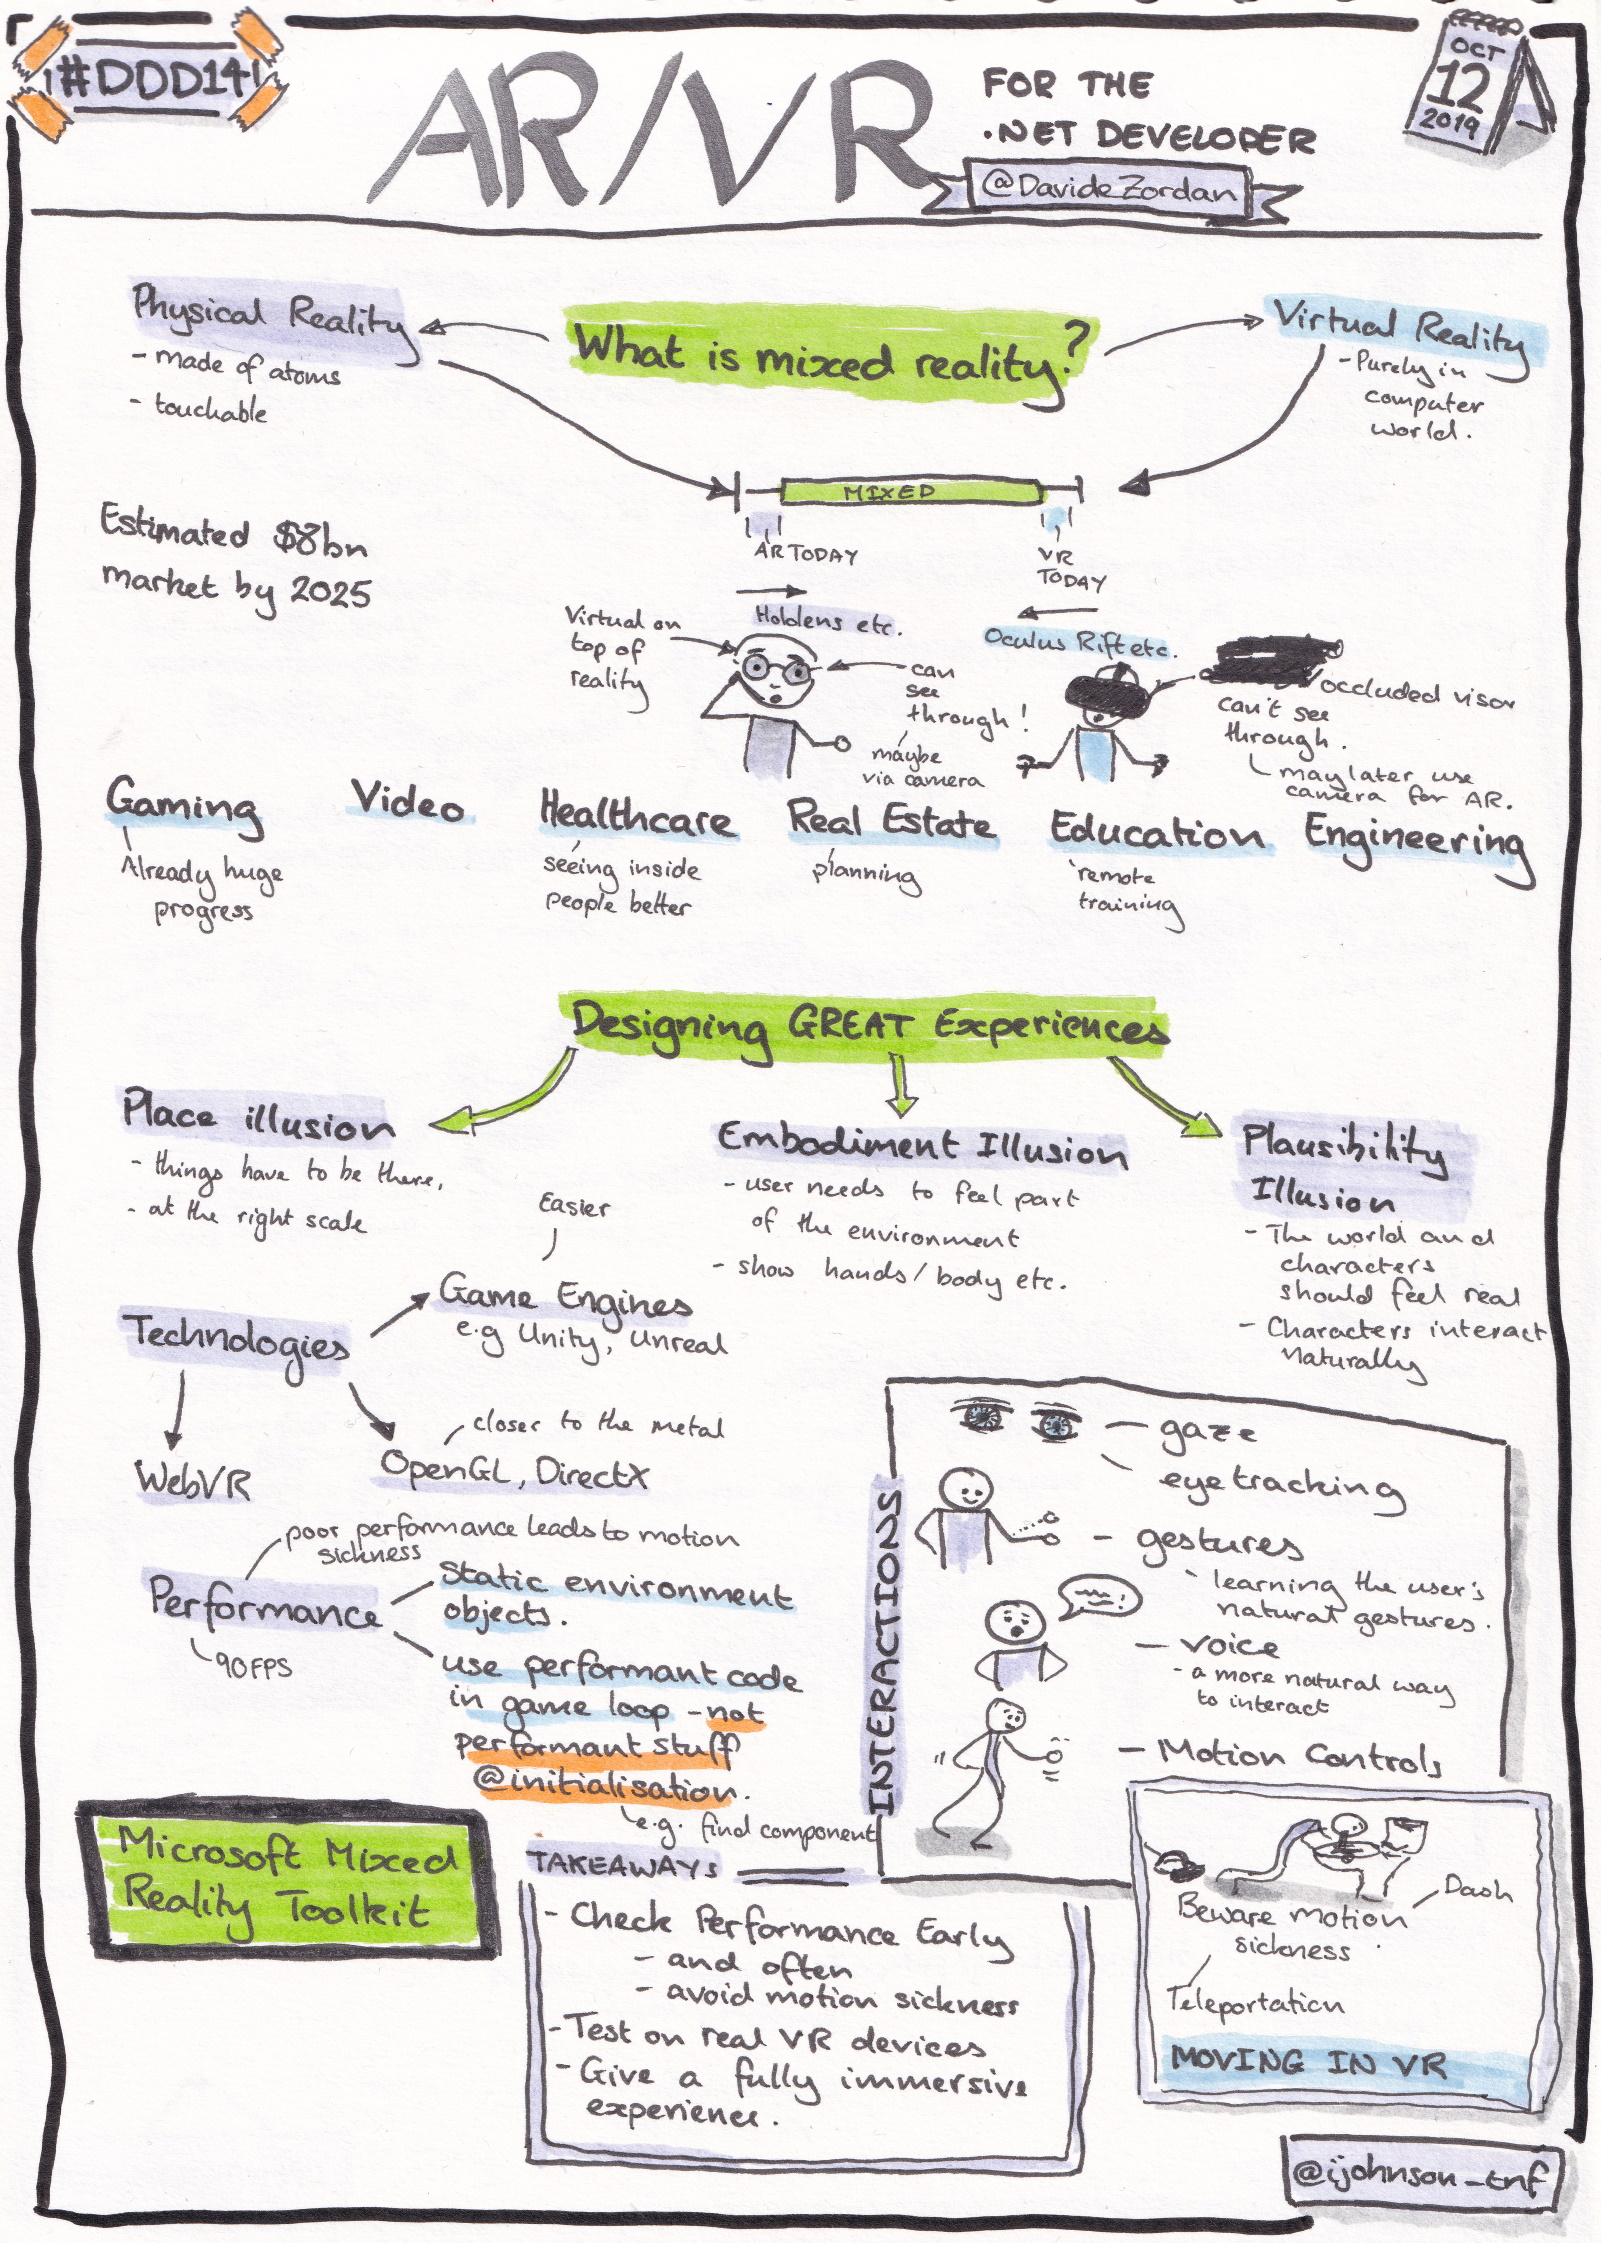 #DDD14!
AR/VR
FOR THE
.NET DEVELOPER
@DavideZordan
OCT
12
2019
Physical Reality
- made of atoms
- touchable
What is mixed reality?
Virtual Reality
- Purely in
computer
world.
MIXED
AR TODAY
VR
TODAY
Estimated $8bn
market by 2025
Holdens etc.
Oculus Rift etc.
Virtual on
top of
reality
can
see
through!
maybe
via camera
occluded visor
can't see
through.
may later use
camera for AR.
Gaming
Already huge
progress
Video
Healthcare
seeing inside
people better
Real Estate
planning
Education
remote
training
Engineering
Designing GREAT Experiences
Place illusion
- things have to be there,
- at the right scale
Embodiment Illusion
- user needs to feel part
of the environment
- show hands/body etc.
Plausibility
Illusion
- The world and
characters
should feel real
- Characters interact
naturally
Technologies
Easier
Game Engines
e.g Unity, Unreal
WebVR
closer to the metal
OpenGL, DirectX
poor performance leads to motion
sickness
Performance
90FPS
Static environment
objects.
use performant code
in game loop - not
performant stuff
@initialisation.
e.g. find component
INTERACTIONS
- gaze
eye tracking
- gestures
- learning the user's
natural gestures.
- voice
- a more natural way
to interact
- Motion Controls
Microsoft Mixed
Reality Toolkit
TAKEAWAYS
- Check Performance Early
- and often
- avoid motion sickness
- Test on real VR devices
- Give a fully immersive
experience.
Dash
Beware motion
sickness.
Teleportation
MOVING IN VR
@ijohnson_tnf